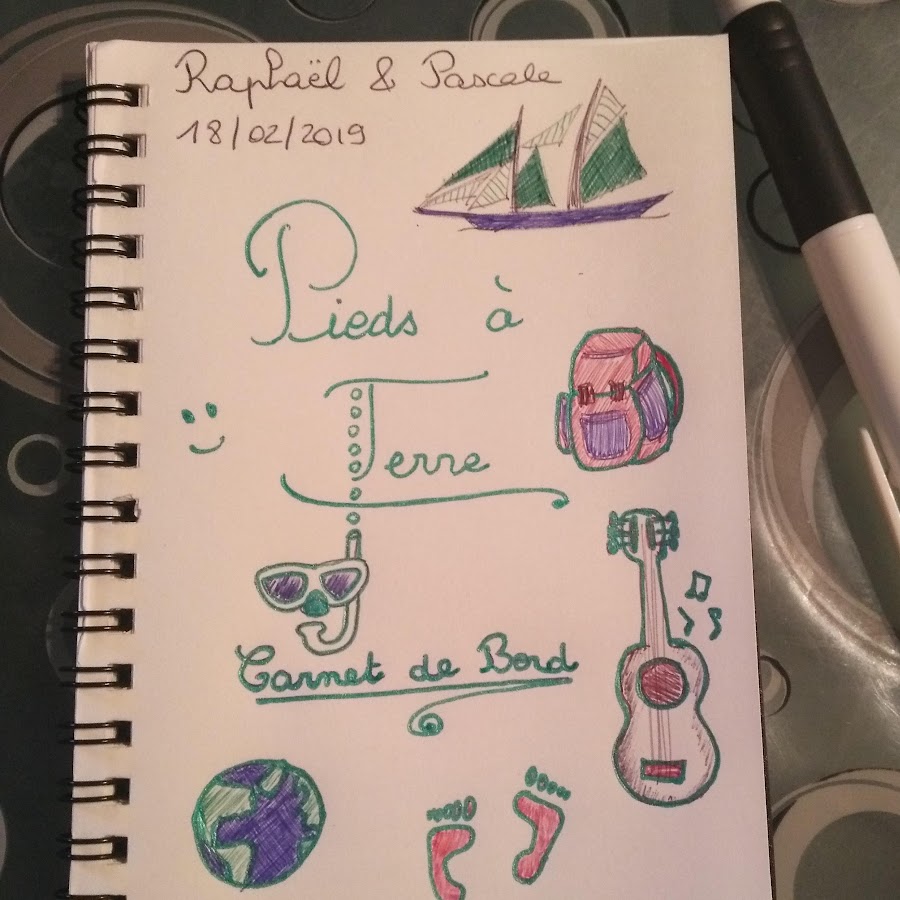 Raphaël & Pascale
18/02/2019
Pieds à
Terre
Carnet de Bord